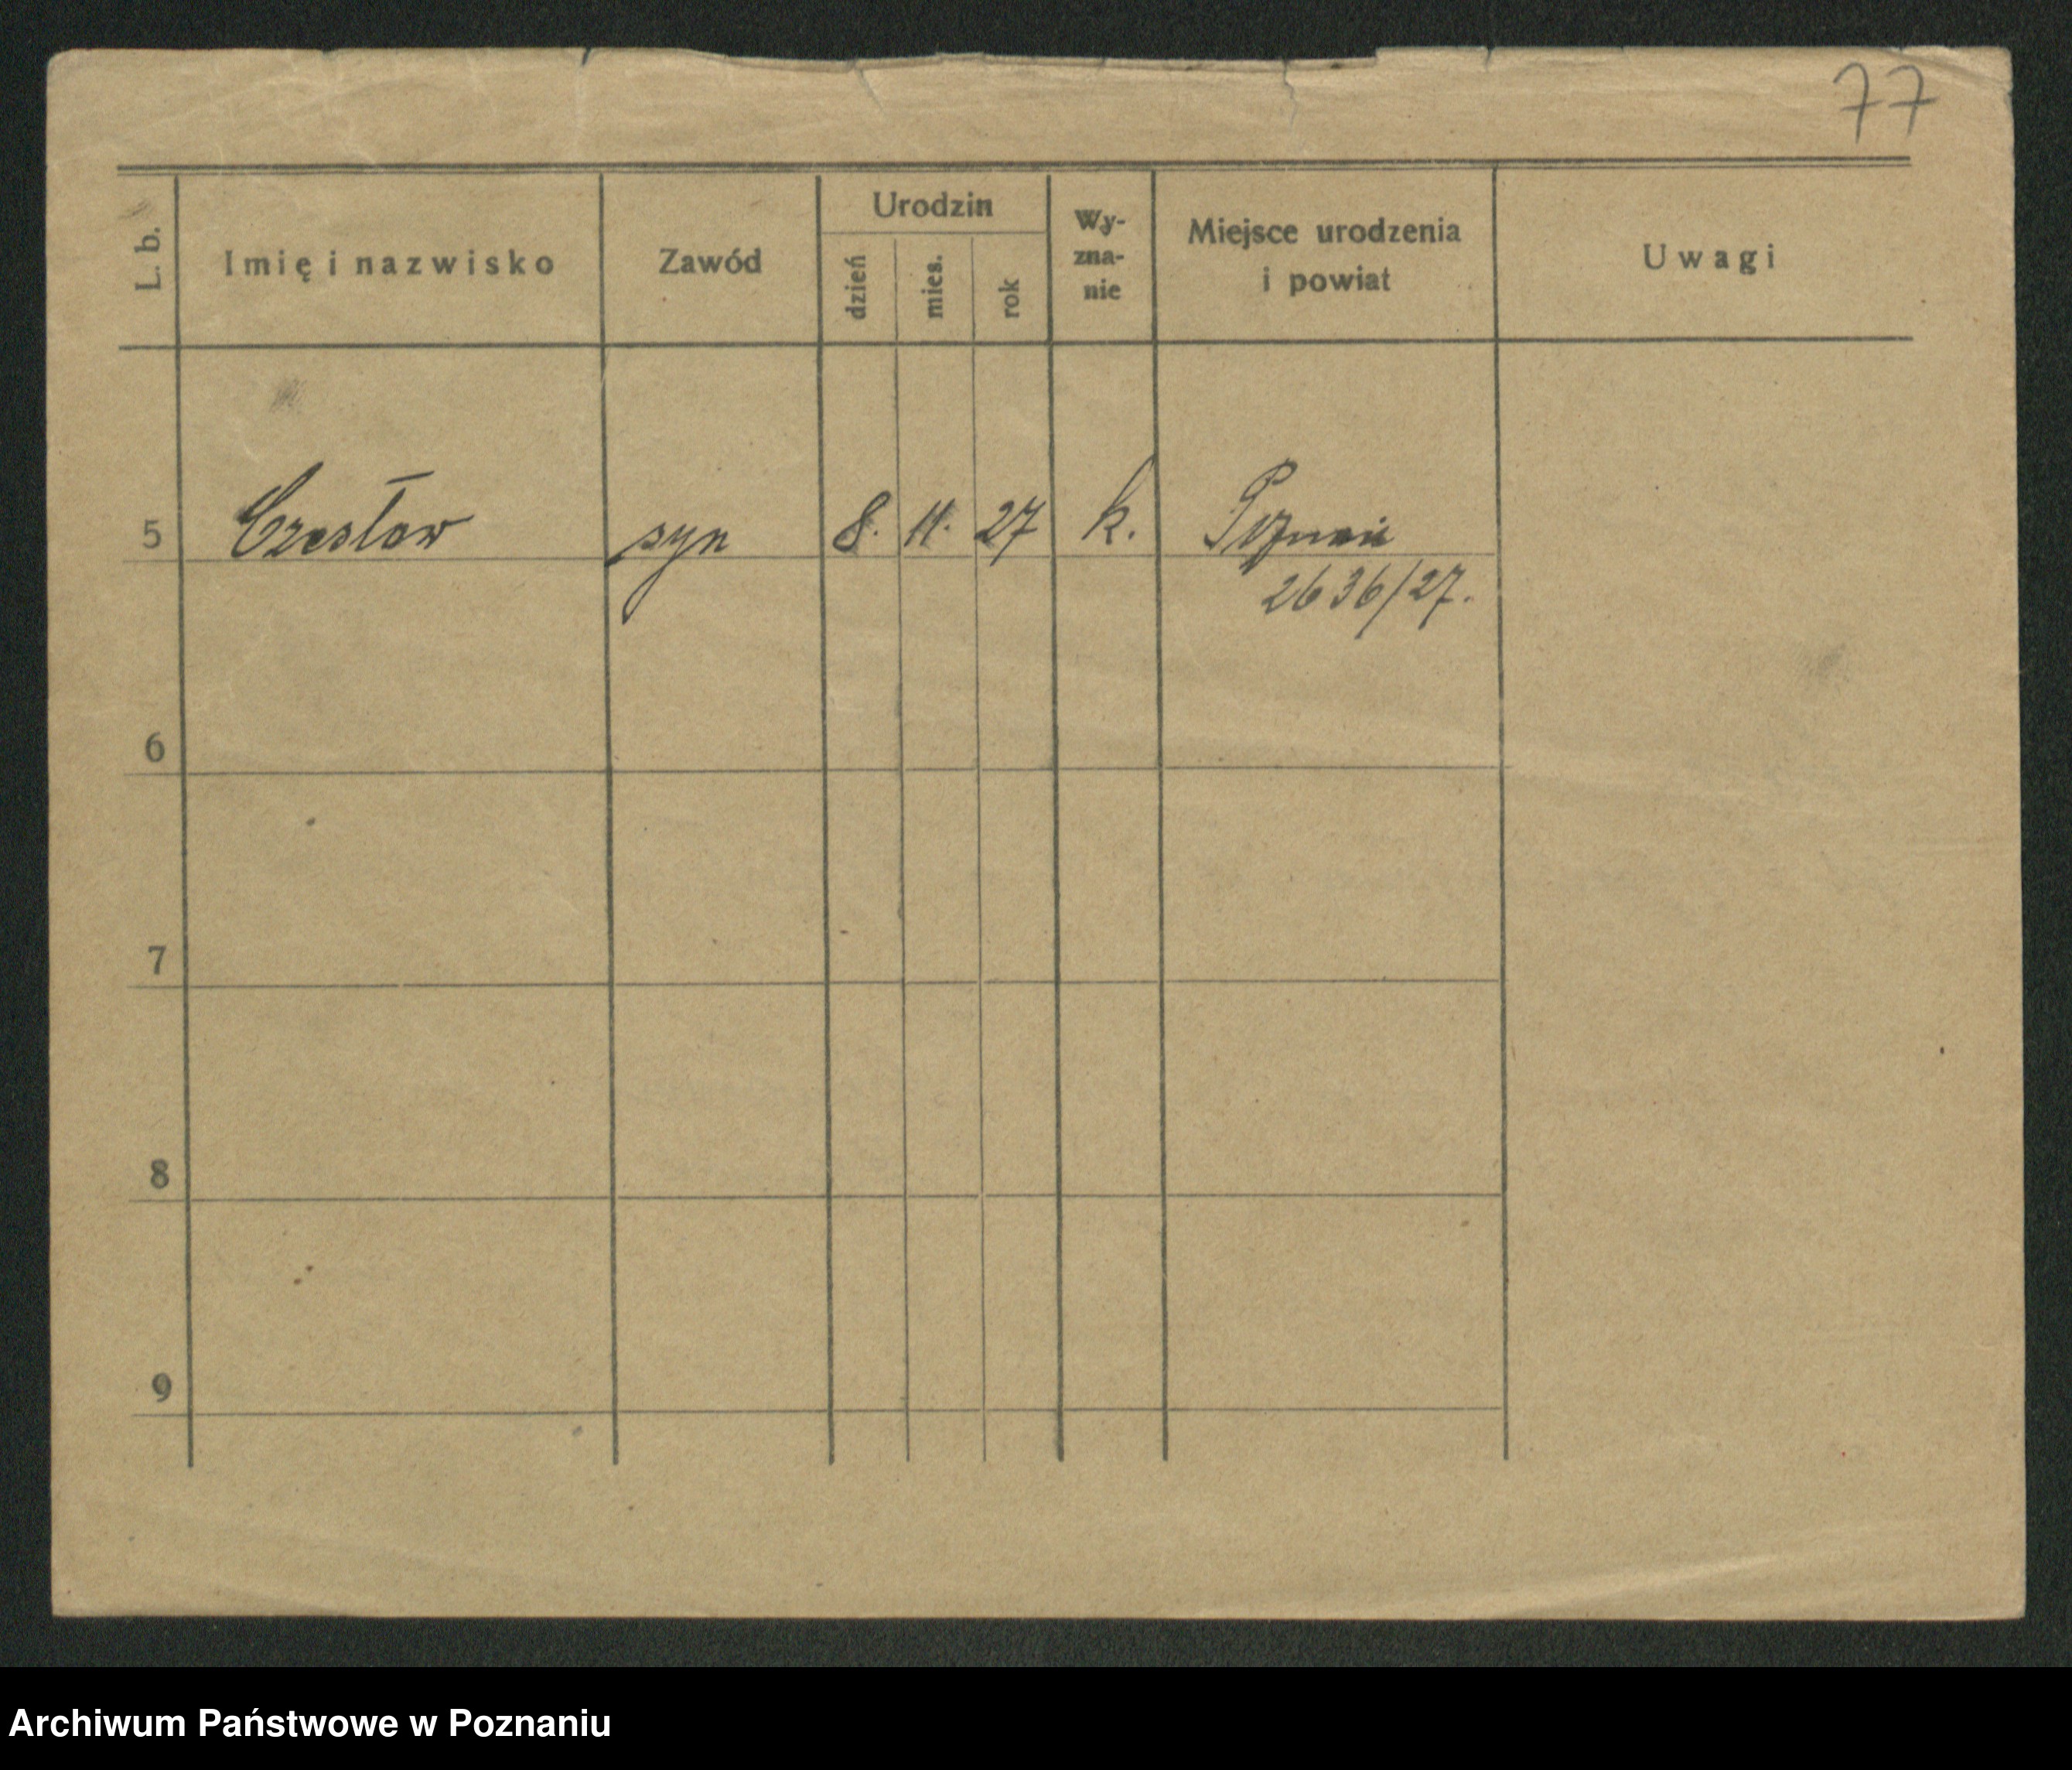 77
L. b.
Imię i nazwisko
Zawód
Urodzin
dzień
mies.
rok
Wy-
zna-
nie
Miejsce urodzenia
i powiat
Uwagi
5 Czesław syn 8. 11. 27 k. Poznań
2636/27.
6
7
8
9
Archiwum Państwowe w Poznaniu